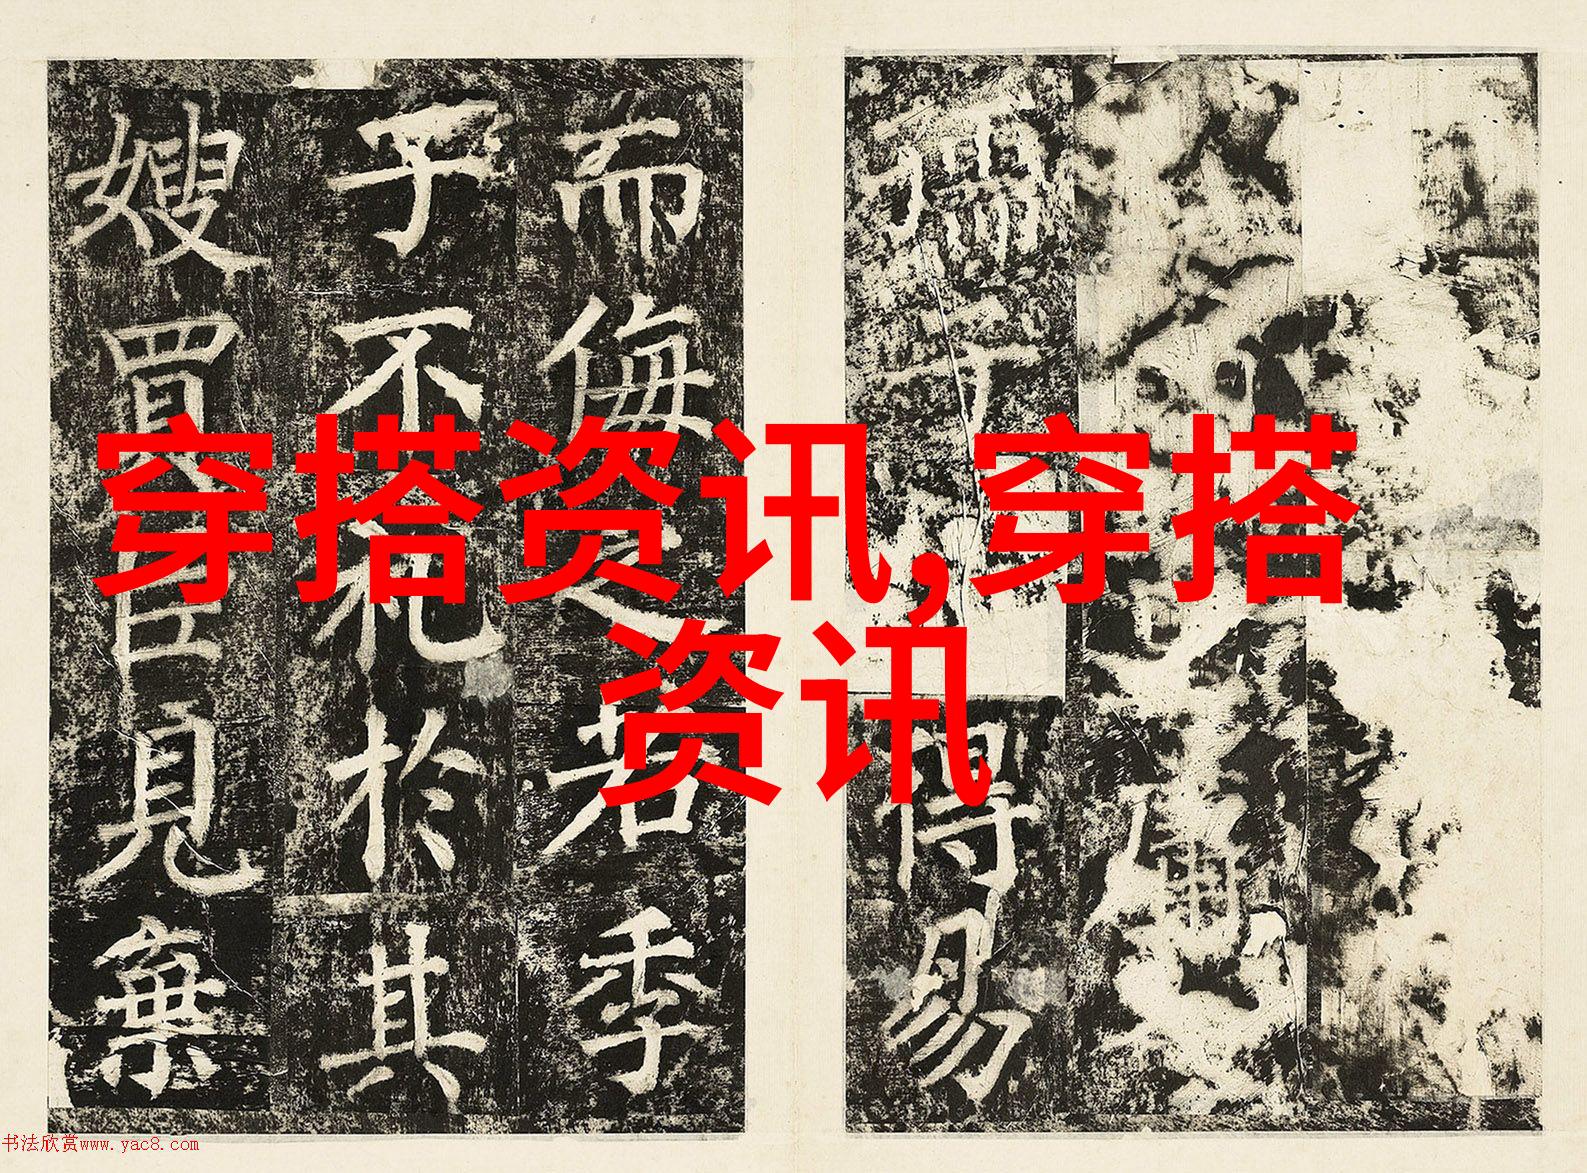 孺得易
而侮之若季
子不礼於其
嫂買臣見棄
穿搭资讯,穿搭
资讯
书法欣赏www.yac8.com